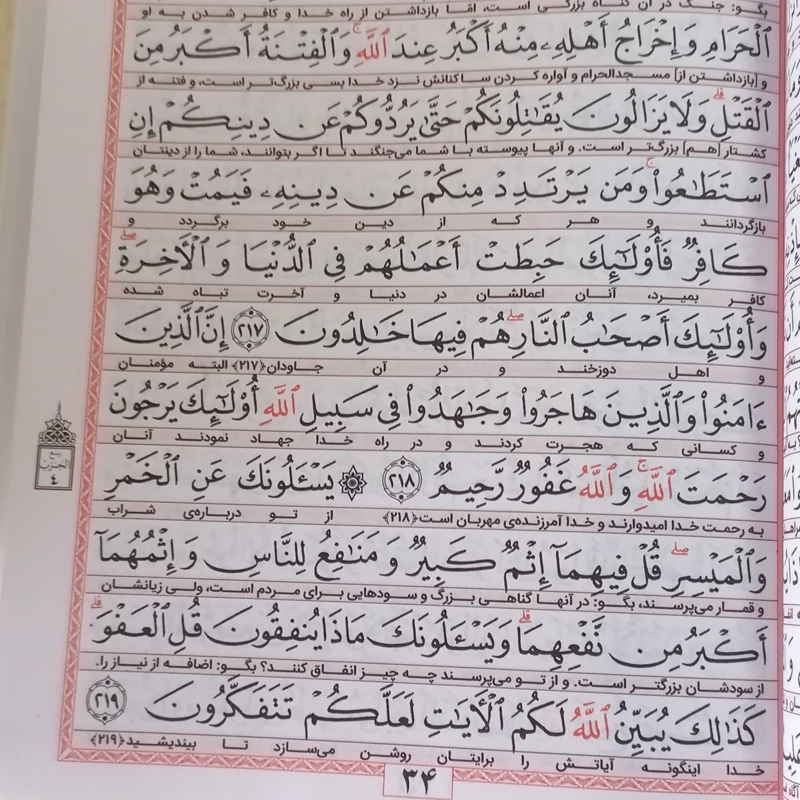 بگو: جنگ در آن گناه بزرگی است، امّا بازداشتن از راه خدا و کافر شدن به او
ٱلْحَرَامِ وَإِخْرَاجُ أَهْلِهِۦ مِنْهُ أَكْبَرُ عِندَ ٱللَّهِ ۚ وَٱلْفِتْنَةُ أَكْبَرُ مِنَ
و [بازداشتن از] مسجدالحرام و آواره کردن ساکنانش نزد خدا بسی بزرگ‌تر است، و فتنه از
ٱلْقَتْلِ ۗ وَلَا يَزَالُونَ يُقَـٰتِلُونَكُمْ حَتَّىٰ يَرُدُّوكُمْ عَن دِينِكُمْ إِنِ
کشتار [هم] بزرگ‌تر است. و آنها پیوسته با شما می‌جنگند تا اگر بتوانند، شما را از دینتان
ٱسْتَطَـٰعُوا۟ ۚ وَمَن يَرْتَدِدْ مِنكُمْ عَن دِينِهِۦ فَيَمُتْ وَهُوَ
بازگردانند و هر که از دین خود برگردد و
كَافِرٌ فَأُو۟لَـٰٓئِكَ حَبِطَتْ أَعْمَـٰلُهُمْ فِى ٱلدُّنْيَا وَٱلْـَٔاخِرَةِ ۖ
کافر بمیرد، آنان اعمالشان در دنیا و آخرت تباه شده
وَأُو۟لَـٰٓئِكَ أَصْحَـٰبُ ٱلنَّارِ ۖ هُمْ فِيهَا خَـٰلِدُونَ ﴿٢١٧﴾ إِنَّ ٱلَّذِينَ
و اهل دوزخند و در آن جاودان﴿۲۱۷﴾ البته مؤمنان
ءَامَنُوا۟ وَٱلَّذِينَ هَاجَرُوا۟ وَجَـٰهَدُوا۟ فِى سَبِيلِ ٱللَّهِ أُو۟لَـٰٓئِكَ يَرْجُونَ
و کسانی که هجرت کردند و در راه خدا جهاد نمودند آنان
رَحْمَتَ ٱللَّهِ ۚ وَٱللَّهُ غَفُورٌ رَّحِيمٌ ﴿٢١٨﴾ ۞ يَسْـَٔلُونَكَ عَنِ ٱلْخَمْرِ
به رحمت خدا امیدوارند و خدا آمرزنده‌ی مهربان است﴿۲۱۸﴾ از تو درباره‌ی شراب
وَٱلْمَيْسِرِ ۖ قُلْ فِيهِمَآ إِثْمٌ كَبِيرٌ وَمَنَـٰفِعُ لِلنَّاسِ وَإِثْمُهُمَآ
و قمار می‌پرسند، بگو: در آنها گناهی بزرگ و سودهایی برای مردم است، ولی زیانشان
أَكْبَرُ مِن نَّفْعِهِمَا ۗ وَيَسْـَٔلُونَكَ مَاذَا يُنفِقُونَ قُلِ ٱلْعَفْوَ ۗ
از سودشان بزرگتر است. و از تو می‌پرسند چه چیز انفاق کنند؟ بگو: اضافه از نیاز را.
كَذَٰلِكَ يُبَيِّنُ ٱللَّهُ لَكُمُ ٱلْـَٔايَـٰتِ لَعَلَّكُمْ تَتَفَكَّرُونَ ﴿٢١٩﴾
خدا اینگونه آیاتش را برایتان روشن می‌سازد تا بیندیشید﴿۲۱۹﴾
۳۴
ربع
الحزب
٤